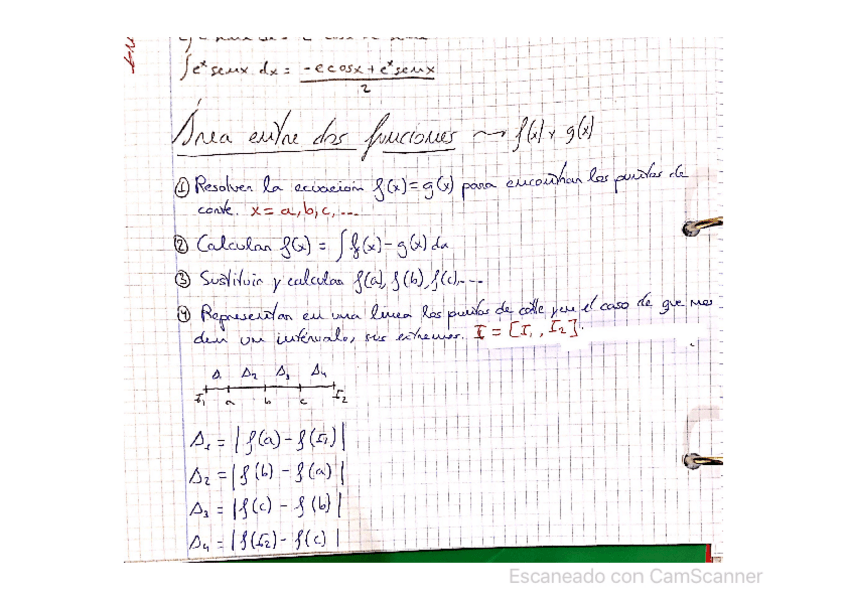 ∫eˣ senx dx = -ecosx + eˣ senx / 2
Área entre dos funciones → f(x) y g(x)
① Resolver la ecuación f(x) = g(x) para encontrar los puntos de
corte. x = a, b, c, ...
② Calcular f(x) = ∫ f(x) - g(x) dx
③ Sustituir y calcular f(a), f(b), f(c), ...
④ Representar en una linea los puntos de corte y en el caso de que nos
den un intérvalo, sus extremos. I = [I₁, I₂].
Δ Δ₂ Δ₃ Δ₄
I₁ a b c I₂
Δ₁ = | f(a) - f(I₁) |
Δ₂ = | f(b) - f(a) |
Δ₃ = | f(c) - f(b) |
Δ₄ = | f(I₂) - f(c) |
Escaneado con CamScanner